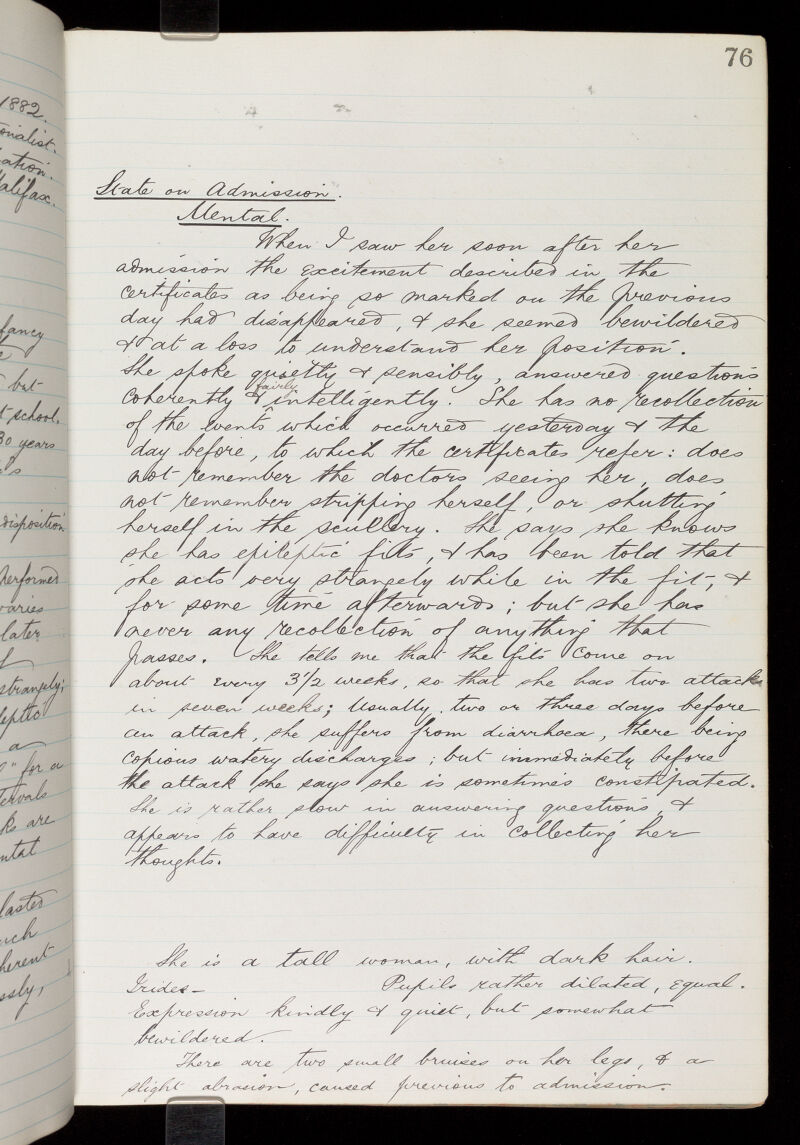 76
1882.
Halifax.
State on Admission.
Mental.
When I saw her soon after her
admission the excitement described in the
certificates as being so marked on the previous
day had disappeared, & she seemed bewildered
& at a loss to understand her position.
She spoke quietly & sensibly, answered questions
coherently & fairly intelligently. She has no recollection
of the events which occurred yesterday & the
day before, to which the certificates refer: does
not remember the doctors seeing her, does
not remember stripping herself, or shutting
herself in the scullery. She says she knows
she has epileptic fits, & has been told that
she acts very strangely while in the fit, &
for some time afterwards; but she has
never any recollection of anything that
passes. She tells me that the fits come on
about every 3 1/2 weeks, so that she has two attacks
in seven weeks; Usually two or three days before
an attack, she suffers from diarrhoea, there being
copious watery discharges; but immediately before
the attack she says she is sometimes constipated.
She is rather slow in answering questions, &
appears to have difficulty in collecting her
thoughts.
She is a tall woman, with dark hair.
Irides- Pupils rather dilated, equal.
Expression kindly & quiet, but somewhat
bewildered.
There are two small bruises on her legs, & a
slight abrasion, caused previous to admission.
but
school.
30 years
disposition
performed
later
strangely;
a
for a
are
lasted